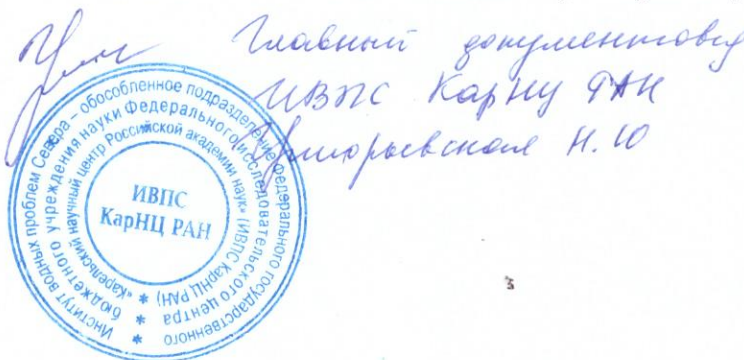 Главный документовед
ИВПС КарНЦ РАН
Н. Ю
Институт водных проблем Севера – обособленное подразделение Федерального государственного
бюджетного учреждения науки Федерального исследовательского центра
"Карельский научный центр Российской академии наук" (ИВПС КарНЦ РАН)
ИВПС
КарНЦ РАН